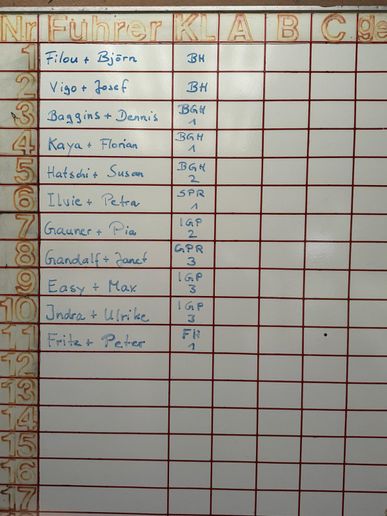 Nr Führer KL A B C ge
1 Filou + Björn BH
2 Vigo + Josef BH
3 Baggins + Dennis BGH 1
4 Kaya + Florian BGH 1
5 Hatschi + Susan BGH 2
6 Ilvie + Petra SPR 1
7 Gauner + Pia IGP 2
8 Gandalf + Janet GPR 3
9 Easy + Max IGP 3
10 Indra + Ulrike IGP 3
11 Fritz + Peter FH 1
12
13
14
15
16
17